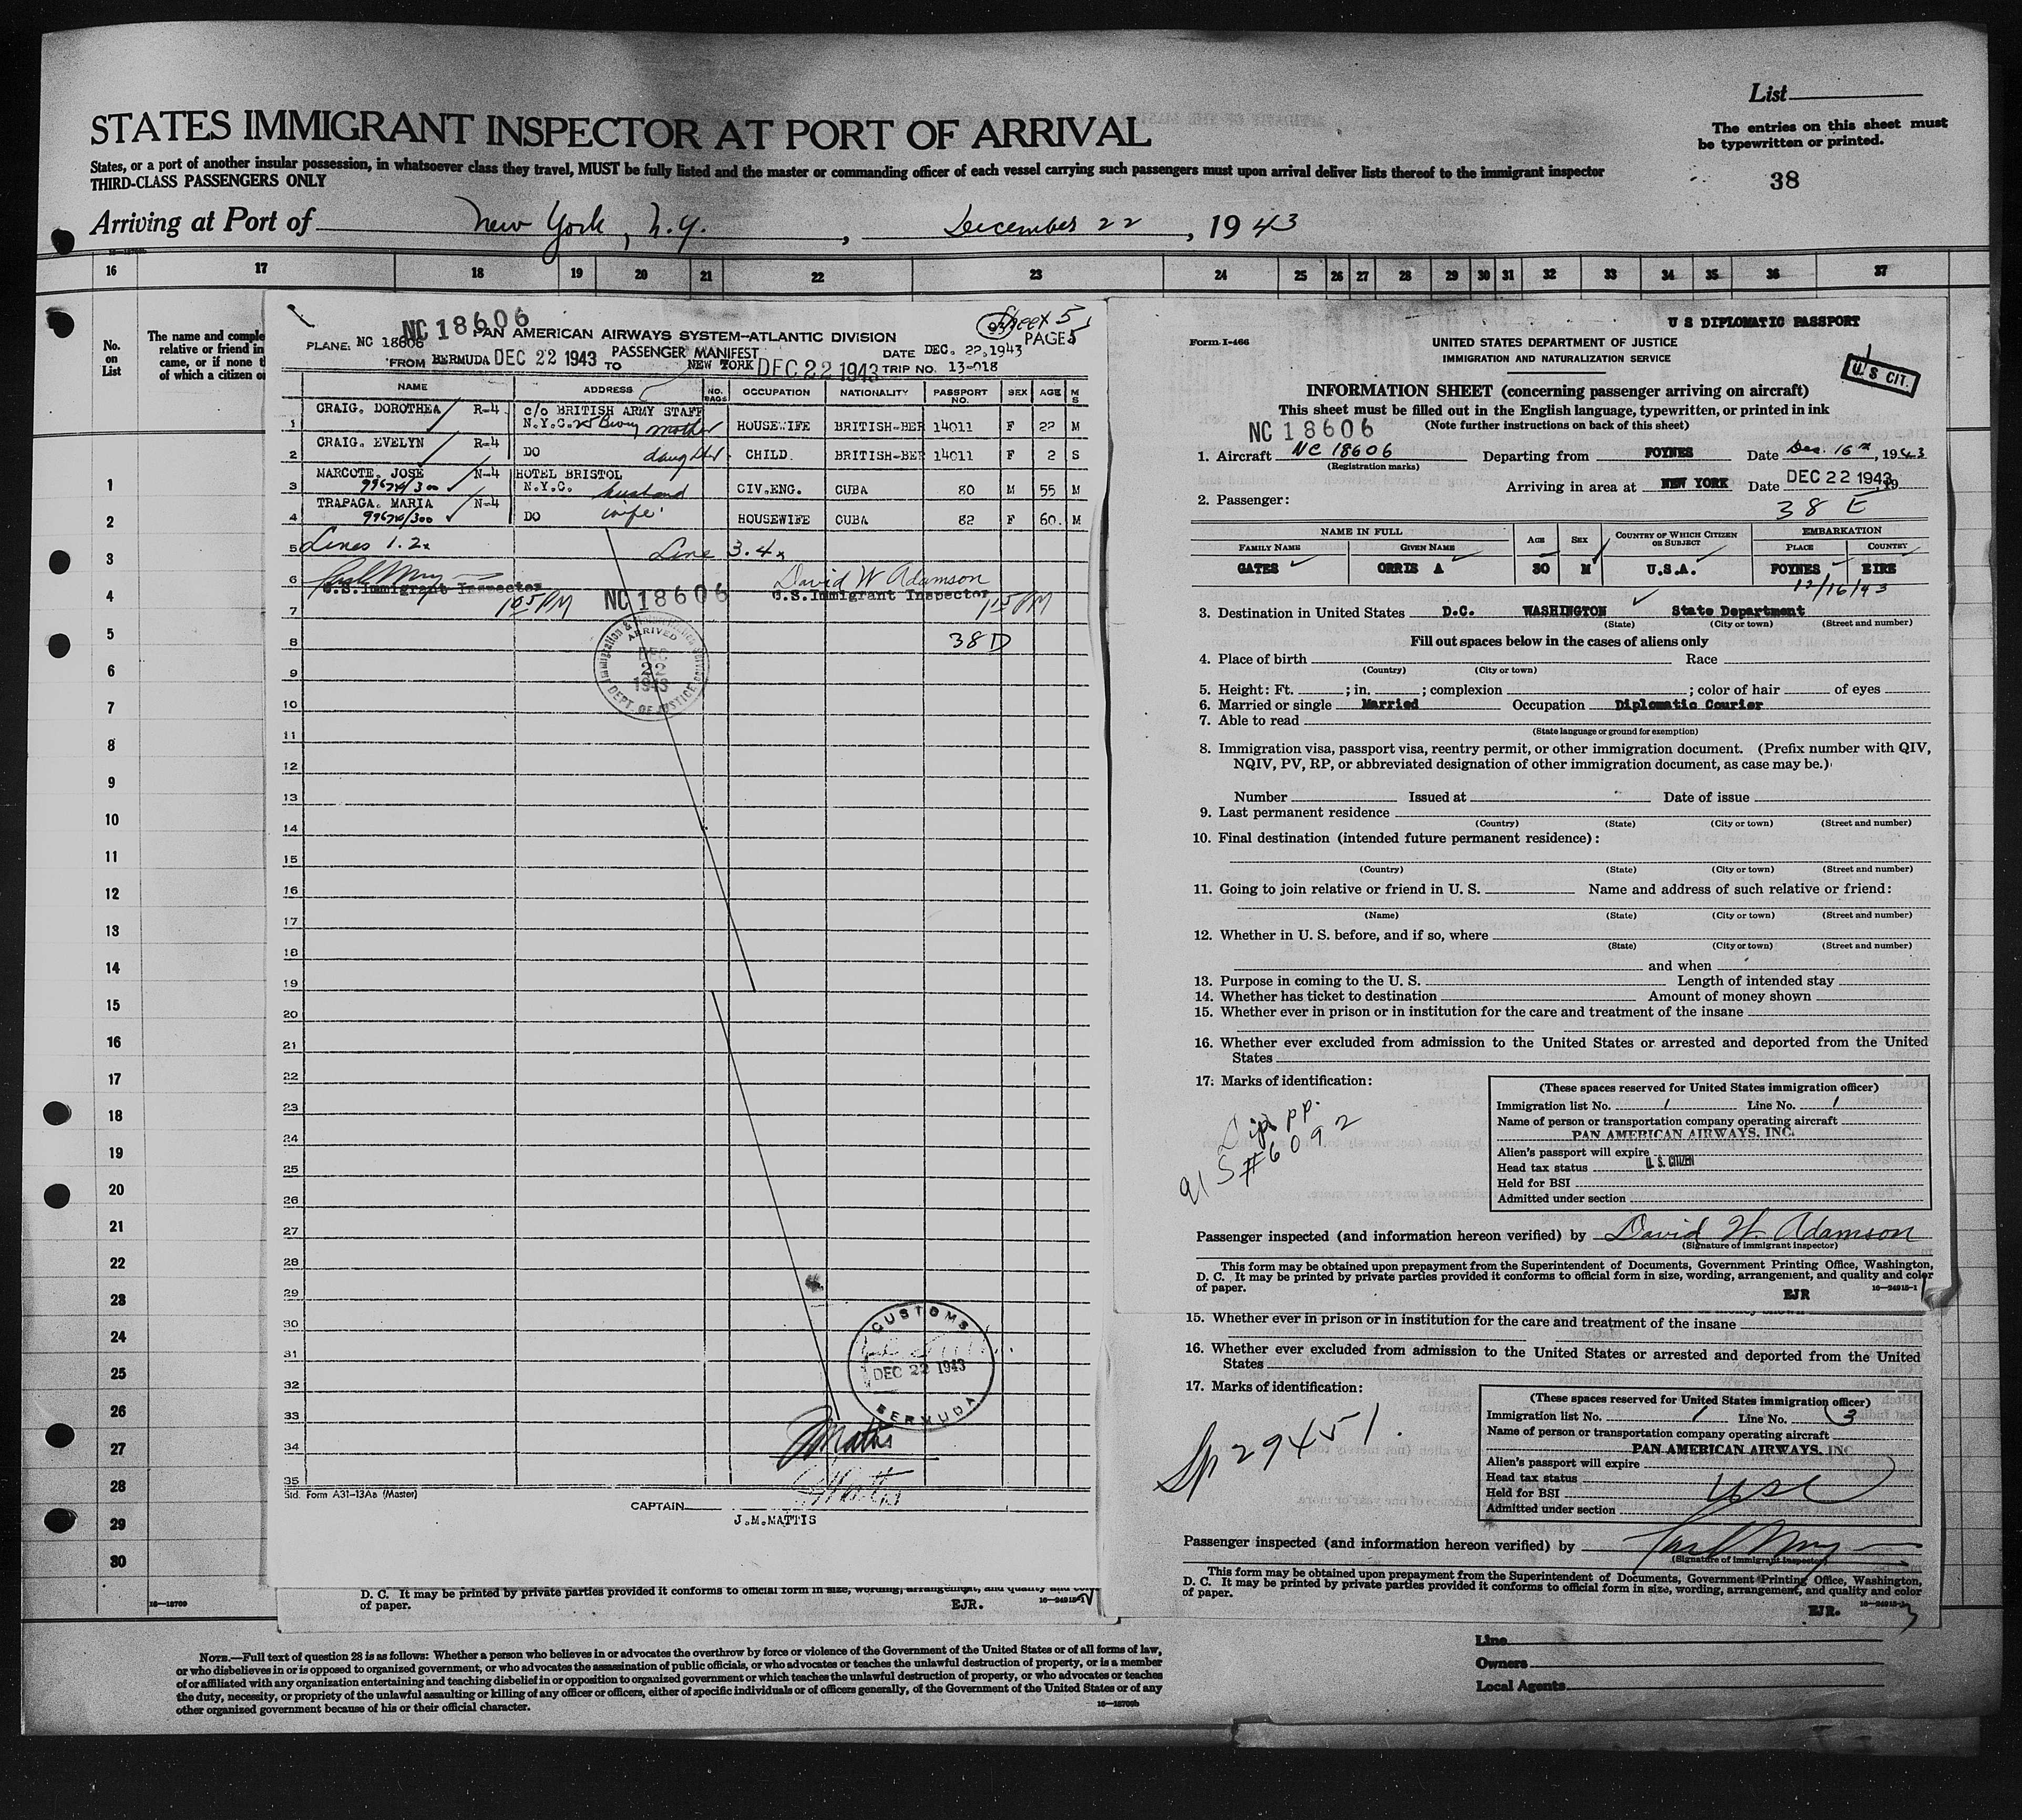 List
STATES IMMIGRANT INSPECTOR AT PORT OF ARRIVAL
The entries on this sheet must
be typewritten or printed.
States, or a port of another insular possession, in whatsoever class they travel, MUST be fully listed and the master or commanding officer of each vessel carrying such passengers must upon arrival deliver lists thereof to the immigrant inspector
THIRD-CLASS PASSENGERS ONLY
38
Arriving at Port of New York, N.Y., December 22, 1943
16 17 18 19 20 21 22 23 24 25 26 27 28 29 30 31 32 33 34 35 36 37
No.
on
List
The name and comple
relative or friend in
came, or if none t
of which a citizen o
1
2
3
4
5
6
7
8
9
10
11
12
13
14
15
16
17
18
19
20
21
22
23
24
25
26
27
28
29
30
16—18709
NC 18606
Sheet 5
PAN AMERICAN AIRWAYS SYSTEM—ATLANTIC DIVISION
PAGE 5
PLANE: NC 18606
PASSENGER MANIFEST
DATE DEC. 22, 1943
FROM BERMUDA DEC 22 1943 TO NEW YORK DEC 22 1943 TRIP NO. 13-018
NAME ADDRESS NO. BAGS OCCUPATION NATIONALITY PASSPORT NO. SEX AGE M S
1 CRAIG, DOROTHEA R-4 c/o BRITISH ARMY STAFF
N.Y.C. mother HOUSEWIFE BRITISH-BER 14011 F 22 M
2 CRAIG, EVELYN R-4 DO daughter CHILD. BRITISH-BER 14011 F 2 S
3 MARCOTE, JOSE N-4 HOTEL BRISTOL
99674/300 N.Y.C. husband CIV.ENG. CUBA 80 M 55 M
4 TRAPAGA, MARIA N-4
99674/300 DO wife HOUSEWIFE CUBA 82 F 60. M
5 Lines 1.2 Line 3.4
6 David W Adamson
U.S. Immigrant Inspector U.S. Immigrant Inspector
7 105 PM NC 18606 115 PM
8 38 D
Immigration & Naturalization Service
ARRIVED
DEC
22
1943
DEPT. OF JUSTICE
9
10
11
12
13
14
15
16
17
18
19
20
21
22
23
24
25
26
27
28
29
30
31
32
33
34
35
CUSTOMS
DEC 22 1943
BERMUDA
JMattis
Std. Form A31-13Aa (Master)
CAPTAIN
J.M.MATTIS
D. C. It may be printed by private parties provided it conforms to official form in size, wording, arrangement, and quality and color
of paper.
EJR.
16—24915-1
U S DIPLOMATIC PASSPORT
Form I-466
UNITED STATES DEPARTMENT OF JUSTICE
IMMIGRATION AND NATURALIZATION SERVICE
U. S. CIT.
INFORMATION SHEET (concerning passenger arriving on aircraft)
This sheet must be filled out in the English language, typewritten, or printed in ink
(Note further instructions on back of this sheet)
NC 18606
1. Aircraft NC 18606 Departing from FOYNES Date Dec. 16th, 1943
(Registration marks)
Arriving in area at NEW YORK Date DEC 22 1943, 19
2. Passenger:
38 E
NAME IN FULL AGE SEX COUNTRY OF WHICH CITIZEN OR SUBJECT EMBARKATION
FAMILY NAME GIVEN NAME PLACE COUNTRY
GATES ORRIS A 30 M U.S.A. FOYNES EIRE
12/16/43
3. Destination in United States D.C. WASHINGTON State Department
(State) (City or town) (Street and number)
Fill out spaces below in the cases of aliens only
4. Place of birth Race
(Country) (City or town)
5. Height: Ft. ; in. ; complexion ; color of hair of eyes
6. Married or single Married Occupation Diplomatic Courier
7. Able to read
(State language or ground for exemption)
8. Immigration visa, passport visa, reentry permit, or other immigration document. (Prefix number with QIV,
NQIV, PV, RP, or abbreviated designation of other immigration document, as case may be.)
Number Issued at Date of issue
9. Last permanent residence
(Country) (State) (City or town) (Street and number)
10. Final destination (intended future permanent residence):
(Country) (State) (City or town) (Street and number)
11. Going to join relative or friend in U. S. Name and address of such relative or friend:
(Name) (State) (City or town) (Street and number)
12. Whether in U. S. before, and if so, where
(State) (City or town) (Street and number)
and when
13. Purpose in coming to the U. S. Length of intended stay
14. Whether has ticket to destination Amount of money shown
15. Whether ever in prison or in institution for the care and treatment of the insane
16. Whether ever excluded from admission to the United States or arrested and deported from the United
States
17. Marks of identification:
Dip pp.
#6092
(These spaces reserved for United States immigration officer)
Immigration list No. 1 Line No. 1
Name of person or transportation company operating aircraft
PAN AMERICAN AIRWAYS, INC.
Alien's passport will expire
Head tax status U. S. CITIZEN
Held for BSI
Admitted under section
Passenger inspected (and information hereon verified) by David W. Adamson
(Signature of immigrant inspector)
This form may be obtained upon prepayment from the Superintendent of Documents, Government Printing Office, Washington,
D. C. It may be printed by private parties provided it conforms to official form in size, wording, arrangement, and quality and color
of paper.
EJR
16—24915-1
15. Whether ever in prison or in institution for the care and treatment of the insane
16. Whether ever excluded from admission to the United States or arrested and deported from the United
States
17. Marks of identification:
Sp 29451.
(These spaces reserved for United States immigration officer)
Immigration list No. 1 Line No. 3
Name of person or transportation company operating aircraft
PAN AMERICAN AIRWAYS, INC
Alien's passport will expire
Head tax status
Held for BSI USC
Admitted under section
Passenger inspected (and information hereon verified) by
(Signature of immigrant inspector)
This form may be obtained upon prepayment from the Superintendent of Documents, Government Printing Office, Washington,
D. C. It may be printed by private parties provided it conforms to official form in size, wording, arrangement, and quality and color
of paper.
EJR.
16—24915-1
NOTE.—Full text of question 28 is as follows: Whether a person who believes in or advocates the overthrow by force or violence of the Government of the United States or of all forms of law,
or who disbelieves in or is opposed to organized government, or who advocates the assassination of public officials, or who advocates or teaches the unlawful destruction of property, or is a member
of or affiliated with any organization entertaining and teaching disbelief in or opposition to organized government or which teaches the unlawful destruction of property, or who advocates or teaches
the duty, necessity, or propriety of the unlawful assaulting or killing of any officer or officers, either of specific individuals or of officers generally, of the Government of the United States or of any
other organized government because of his or their official character.
16—18709b
Line
Owners
Local Agents